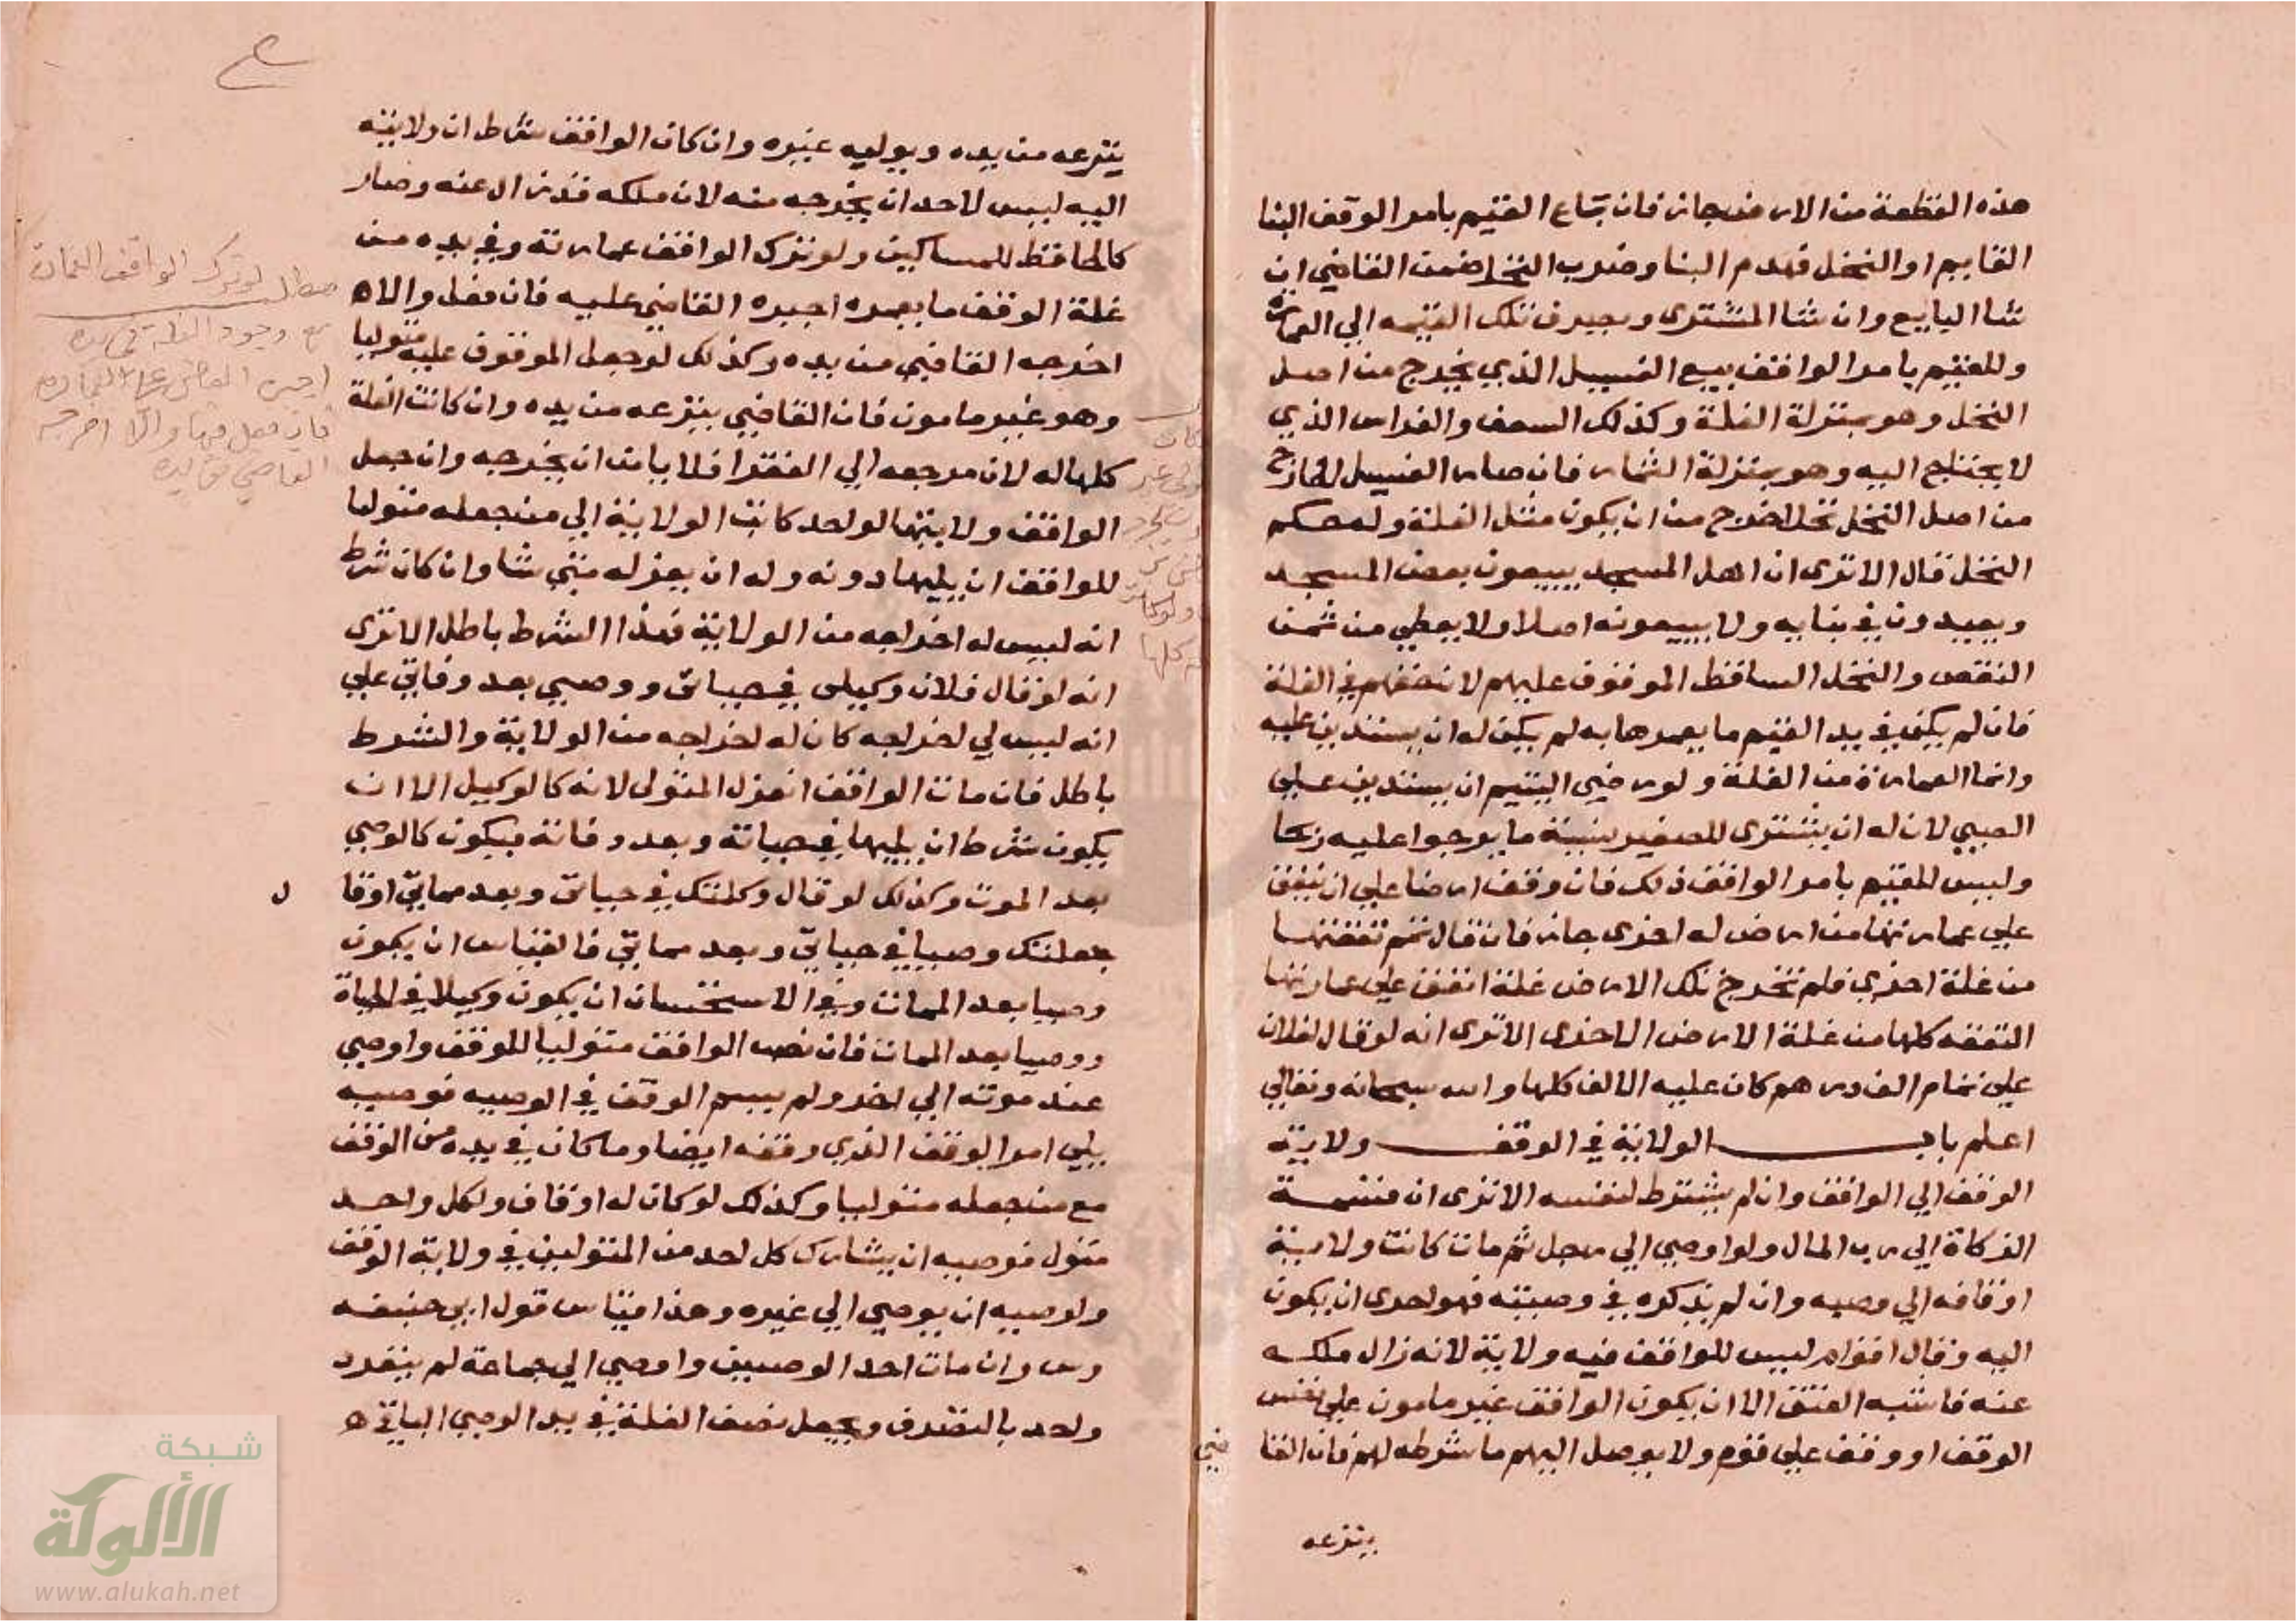 هذه القطعة من الارض جاز فان باع القيم بامر الوقف البنا
القايم او النخل فهدم البنا وضرب النخل ضمن القاضي ان
شا البايع وان شا المشتري ويصرف تلك القيمه الي العمارة
وللقيم بامر الواقف بيع الفسيل الذي يخرج من اصل
النخل وهو بمنزلة الغلة وكذلك السعف والغراس الذي
لا يحتاج اليه وهو بمنزلة الثمار فان صار الفسيل الخارج
من اصل النخل نخلا خرج من ان يكون مثل الغلة وله حكم
النخل قال الا ترى ان اهل المسجد يبيعون بعض المسجد
ويعيدون في بنايه ولا يبيعونه اصلا ولا يعطي من ثمن
النقص والنخل الساقط الموقوف عليهم لان حقهم في الغلة
فان لم يكن في يد القيم ما يعمرها به لم يكن له ان يستدين عليه
وانما العمارة من الغلة ولوصي اليتيم ان يستدين علي
الصبي لان له ان يشتري للصغير بنية ما يرجوا عليه ربحا
وليس للقيم بامر الواقف ذلك فان وقف ارضا علي ان ينفق
علي عمارتها من ارض له اخرى جاز فان قال ثم نفقتها
من غلة اخري فلم تخرج تلك الارض غلة انفق علي عمارتها
النفقه كلها من غلة الارض الاخرى الا ترى انه لو قال لفلان
علي تمام الف درهم كان عليه الالف كلها والله سبحانه وتعالي
اعلم باب الولاية في الوقف ولاية
الوقف الي الواقف وان لم يشترط لنفسه الا ترى ان قسمة
الزكاة الي رب المال ولو اوصي الي رجل ثم مات كانت ولاية
اوقافه الي وصيه وان لم يذكره في وصيته فهو احرى ان يكون
اليه وقال اقوام ليس للواقف فيه ولاية لانه زال ملكه
عنه فاشبه العتق الا ان يكون الواقف غير مامون علي نفس
الوقف او وقف علي قوم ولا يوصل اليهم ما شرطه لهم فان القا
ضي
ينزعه
ينزعه من يده ويوليه غيره وان كان الواقف شرط ان ولايته
اليه ليس لاحد ان يخرجه منه لان ملكه قد زال عنه وصار
كالحافظ للمساكين ولو ترك الواقف عمارته وفي يده من
غلة الوقف ما يعمره اجبره القاضي عليه فان فعل والا
اخرجه القاضي من يده وكذلك لو جعل الموقوف عليه متوليا
وهو غير مامون فان القاضي ينزعه من يده وان كانت الغلة
كلها له لان مرجعه الي الفقرا فلا يامن ان يخرجه وان جعل
الواقف ولايتها لواحد كانت الولاية الي من جعله متوليا
للواقف ان يليها دونه وله ان يعزله متي شا وان كان شرط
انه ليس له اخراجه من الولاية فهذا الشرط باطل الا ترى
انه لو قال فلان وكيلي في حياتي ووصيي بعد وفاتي علي
انه ليس لي اخراجه كان له اخراجه من الولاية والشرط
باطل فان مات الواقف انعزل المتولى لانه كالوكيل الا ان
يكون شرط ان يليها في حياته وبعد وفاته فيكون كالوصي
بعد الموت وكذلك لو قال وكلتك في حياتي وبعد مماتي او قا
ل
جعلتك وصيا في حياتي وبعد مماتي فالقياس ان يكون
وصيا بعد الممات وفي الاستحسان ان يكون وكيلا في الحياة
ووصيا بعد الممات فان نصب الواقف متوليا للوقف واوصي
عند موته الي اخر ولم يسم الوقف في الوصيه فوصيه
يلي امر الوقف الذي وقفه ايضا وما كان في يده من الوقف
مع من جعله متوليا وكذلك لو كان له اوقاف ولكل واحد
متول فوصيه ان يشارك كل احد من المتولين في ولاية الوقف
ولوصيه ان يوصي الي غيره وهذا قياس قول ابي حنيفه
وس وان مات احد الوصيين واوصي الي جماعة لم ينفرد
واحد بالتصرف ويجعل نصف الغلة في يد الوصي الباقي
مطلب لو ترك الواقف العمارة
مع وجود الغلة في يده
اجبره القاضي على العمارة
فان فعل فبها والا اخرجه
القاضي من يده
كان
كلها
شبكة
الألوكة
www.alukah.net